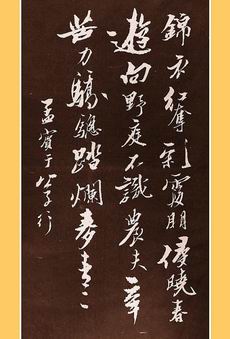 錦衣紅奪彩霞明侵曉春
遊向野庭不識農夫辛
苦力驕驄踏爛麥青々
孟賓于公子行